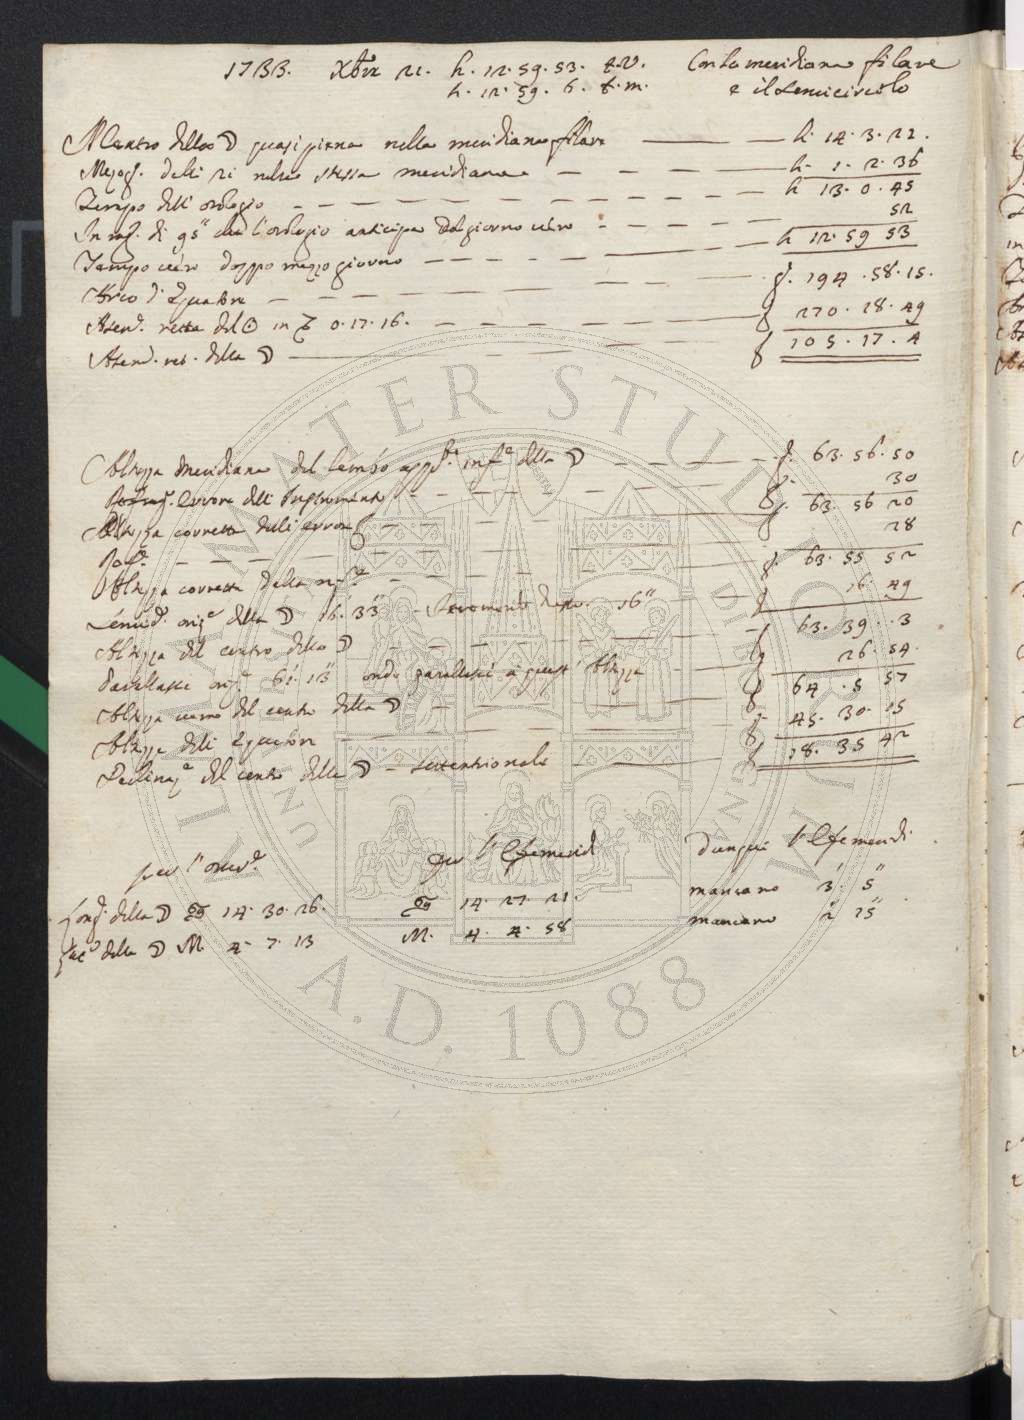 1733. Xbre 21. h. 12. 59. 53. t.v. Con la meridiana filare
h. 12. 59. 6. t.m. e il semicircolo
Il Centro della ☽ quasi piena nella meridiana filare — h. 14. 3. 21.
Mezog. delli 21 nella stessa meridiana — h. 1. 2. 36
Tempo dell' orologio — h 13. 0. 45
In rag. di 95" che l'orologio anticipa dal giorno vero — 52
Tempo vero doppo mezzo giorno — h 12. 59 53
Arco d'Equatore — g. 194. 58. 15.
Ascens. retta del ☉ in ♑ 0. 17. 16. — g 270. 18. 49
Ascens. ret. della ☽ — g 105. 17. 4
Altezza Meridiana del lembo app. inf. della ☽ — g. 63. 56. 50
Errore dell' Instrumento — g. 30
Altezza corretta dell' errore — g. 63. 56 20
Ref. — g 28
Altezza corretta della ref. — g. 63. 55 52
Semid. oriz. della ☽ 16' 33" 16" — g 16. 49
Altezza del centro della ☽ — g 63. 39. 3
Parallasse oriz. 61' 13" onde parallasse a quest' Altezza — g 26. 54.
Altezza vera del centro della ☽ — g 64. 5 57
Altezza dell' Equatore — g. 45. 30. 15
Declinaz. del centro della ☽ settentrionale — g 18. 35 42
per l' osserv. per l' Efemerid Dunque l' Efemeridi
Long. della ☽ ♋ 14. 30. 26. ♋ 14. 27. 21. mancano 3' 5"
Lat. della ☽ M. 4. 7. 13 M. 4. 4. 58 mancano 2' 15"
ALMA MATER STUDIORUM
A.D. 1088